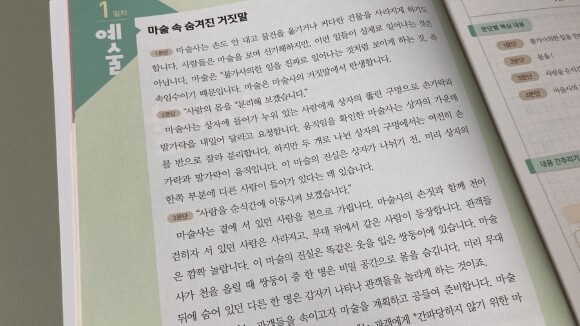 1 일차
예술
마술 속 숨겨진 거짓말
1문단 마술사는 손도 안 대고 물건을 옮기거나 커다란 건물을 사라지게 하기도
합니다. 사람들은 마술을 보며 신기해하지만, 이런 일들이 실제로 일어나는 것은
아닙니다. 마술은 "불가사의한 일을 진짜로 일어나는 것처럼 보이게 하는 것, 즉
속임수이기 때문입니다. 마술은 마술사의 거짓말에서 탄생합니다.
2문단 "사람의 몸을 *분리해 보겠습니다."
마술사는 상자에 들어가 누워 있는 사람에게 상자의 뚫린 구멍으로 손가락과
발가락을 내밀어 달라고 요청합니다. 움직임을 확인한 마술사는 상자의 가운데
를 반으로 잘라 분리합니다. 하지만 두 개로 나뉜 상자의 구멍에서는 여전히 손
가락과 발가락이 움직입니다. 이 마술의 진실은 상자가 나뉘기 전, 미리 상자의
한쪽 부분에 다른 사람이 들어가 있다는 데 있습니다.
3문단 "사람을 순식간에 이동시켜 보겠습니다."
마술사는 곁에 서 있던 사람을 천으로 가립니다. 마술사의 손짓과 함께 천이
걷히자 서 있던 사람은 사라지고, 무대 뒤에서 같은 사람이 등장합니다. 관객들
은 깜짝 놀랍니다. 이 마술의 진실은 똑같은 옷을 입은 쌍둥이에 있습니다. 마술
사가 천을 올릴 때 쌍둥이 중 한 명은 비밀 공간으로 몸을 숨깁니다. 미리 무대
뒤에 숨어 있던 다른 한 명은 갑자기 나타나 관객들을 놀라게 하는 것이죠.
관객들을 속이고자 마술을 계획하고 공들여 준비합니다. 마술
관객에게 *간파당하지 않기 위한 마
문단별 핵심 내용
1문단 불가사의한 일을
2문단 몸을 (
3문단 사람을
4문단 마술사의
내용 간추리기